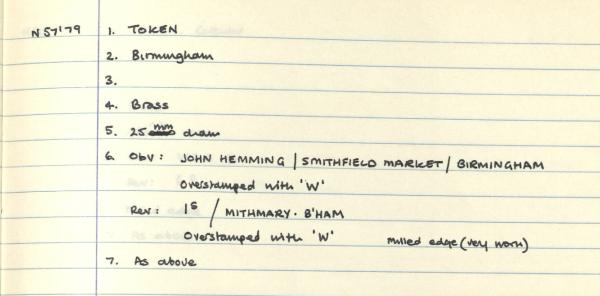 N57'79 1. TOKEN
2. Birmingham
3.
4. Brass
5. 25 mm diam
6. Obv: JOHN HEMMING / SMITHFIELD MARKET / BIRMINGHAM
Overstamped with 'W'
Rev: 1S / MITHMARY. B'HAM
Overstamped with 'W' Milled edge (very worn)
7. As above